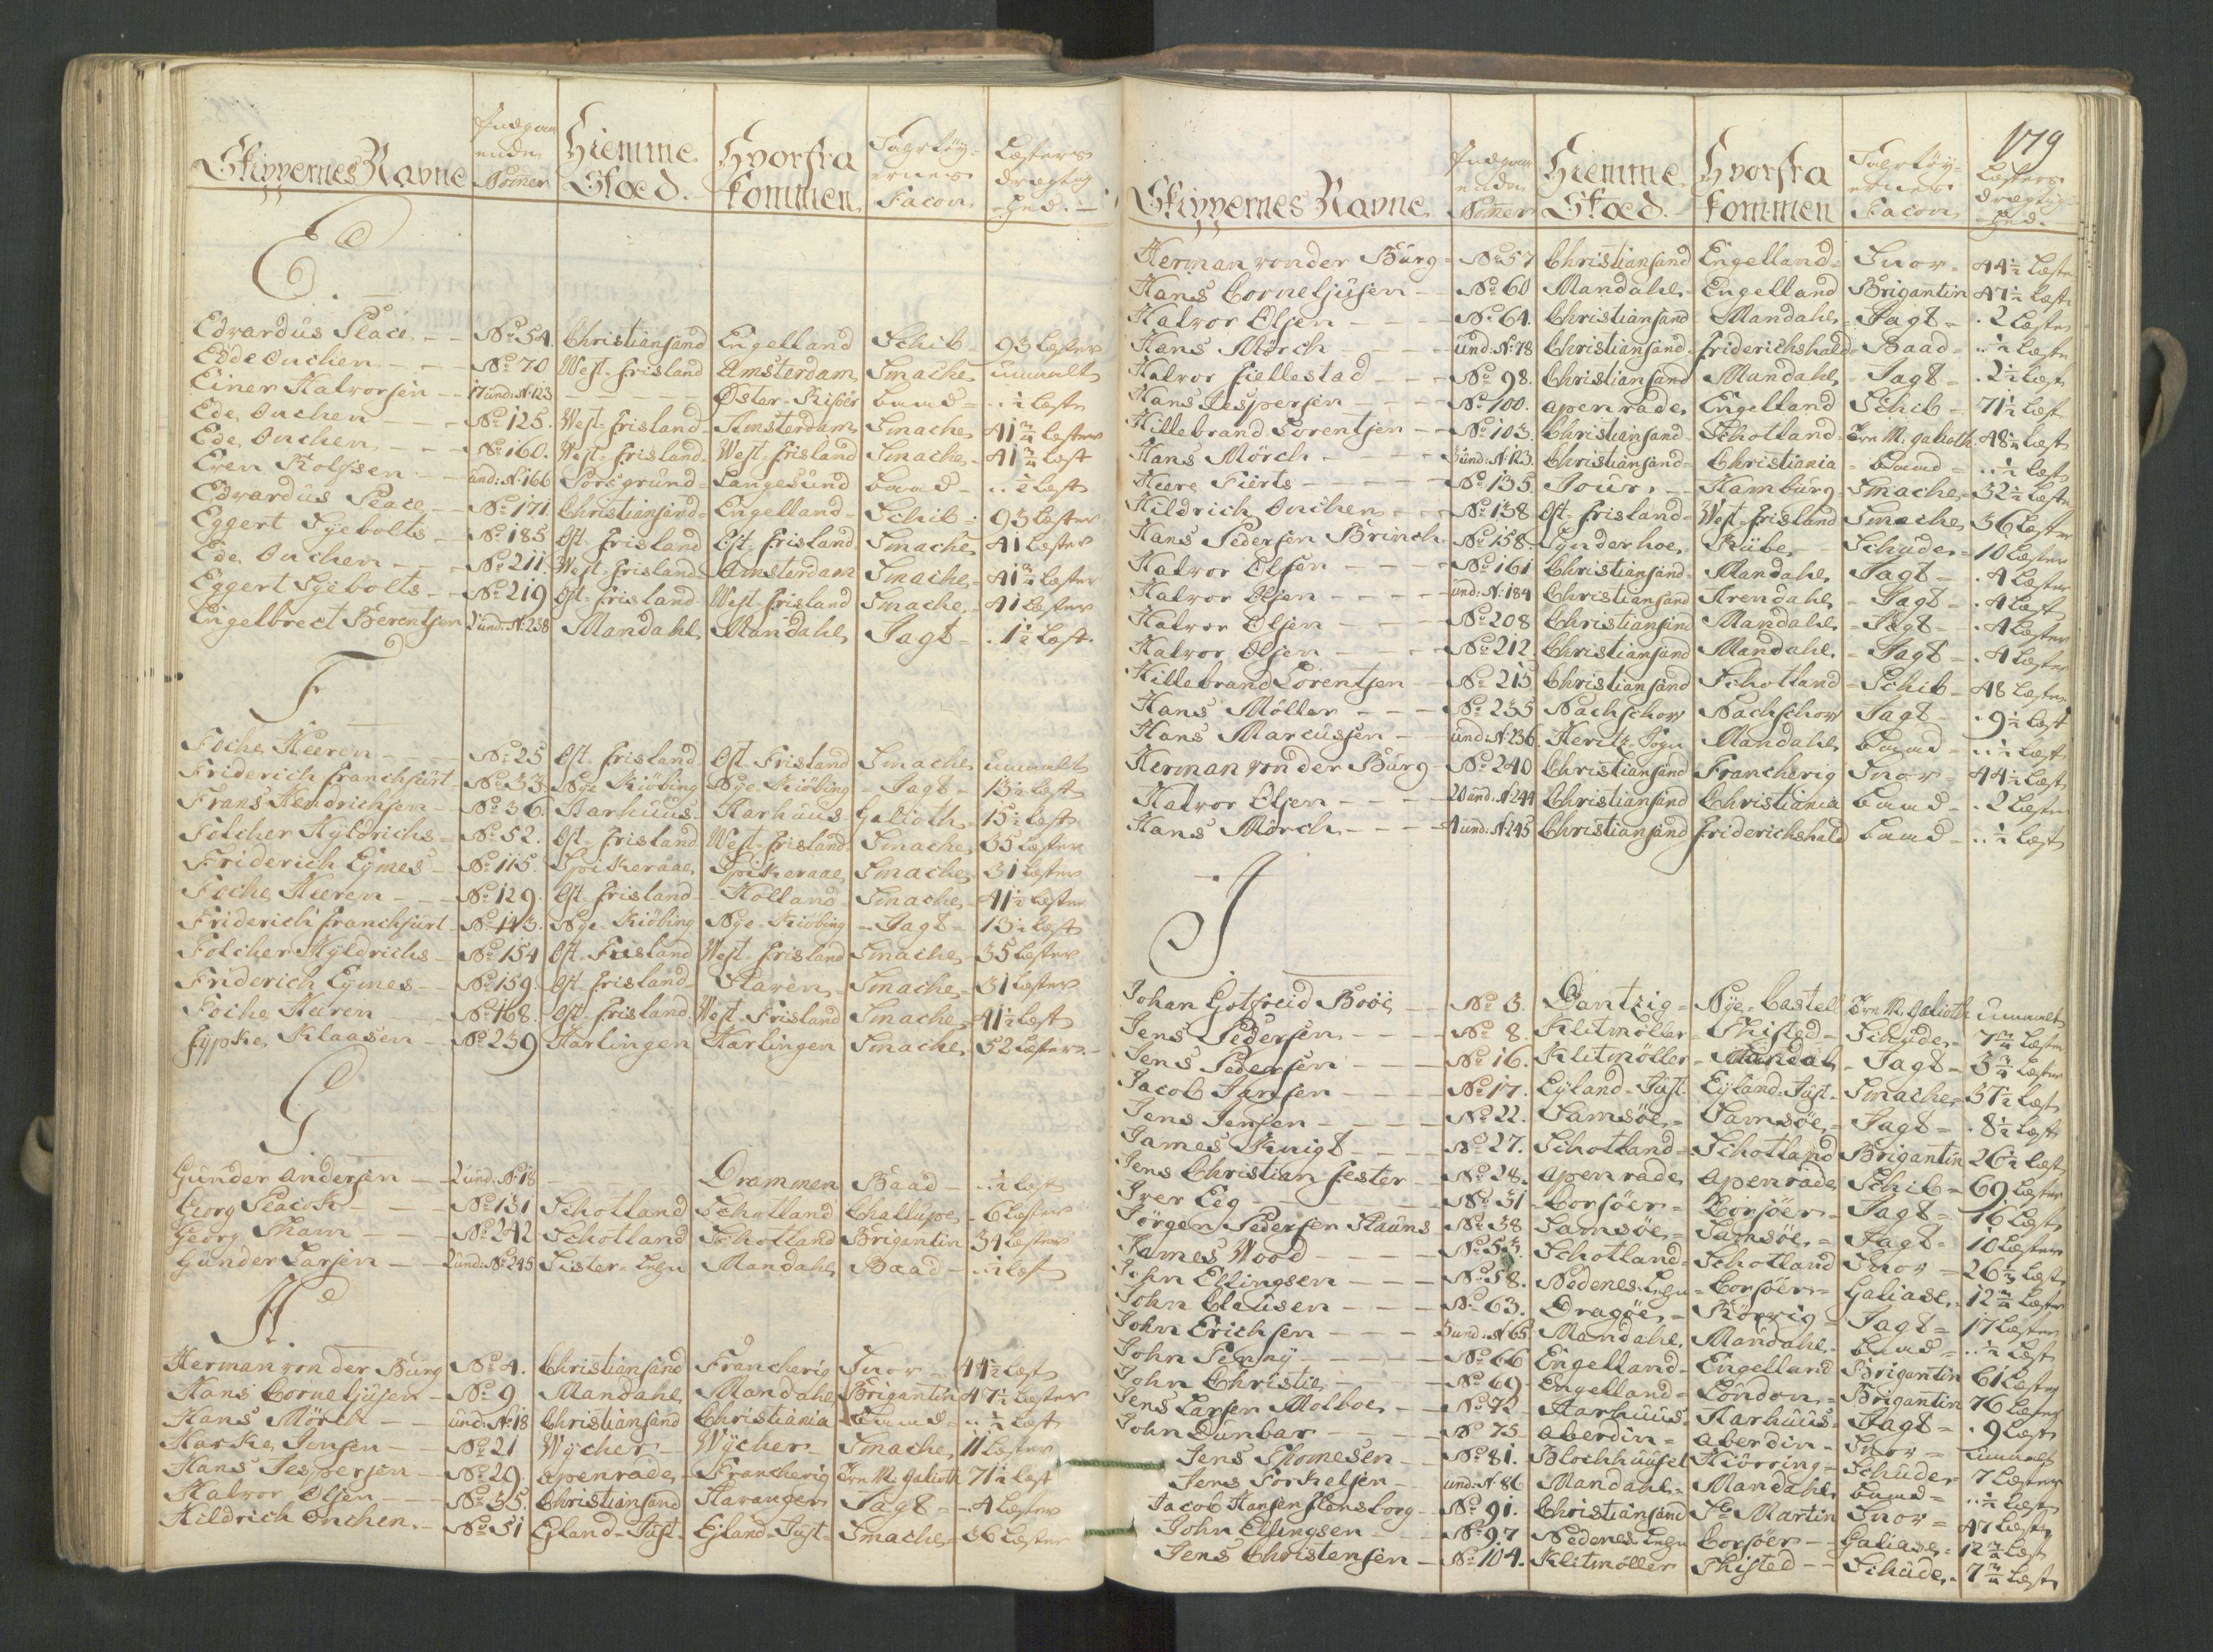 Skippernes Navne | Indgaaende Nomer | Hiemme Stæd. | Hvorfra kommen | Fartöyernes Facon | Læsters drægtighed.
E
Edvardus Peace - - | No 54. | Christiansand | Engelland | Schib - | 93 Læster
Edde Onchen - - - | No 70 | West-frisland | Amsterdam | Smache | umaalt
Einer Halvorsen - - | 17 und: N: 123 | - - - - | Øster-Riisöer | baad = | .. ½ Læst
Ede Onchen - - - | No 125. | West-frisland | Amsterdam | Smache | 41¾ Læster
Ede Onchen - - - | No 160. | West-frisland | West-frisland | Smache | 41¾ Læst
Even Rolfsen - - | und: N: 166 | Porsgrund | Langesund | baad - | .. ½ Læst
Edvardus Peace - | No 171. | Christiansand | Engelland | Schib = | 93 Læster
Eggert Syebolts - | No 185 | Ost-frisland | Ost-frisland | Smache | 41 Læster
Ede Onchen - - - | No 211. | West-frisland | Amsterdam | Smache | 41¾ Læster
Eggert Syebolts - | No 219 | Ost-frisland | West-frisland | Smache | 41 Læster
Engelbrect Berentsen | und: N: 238 | Mandahl | Mandahl | Jagt - | . 1½ Læst
F
Foche Heeren - - - | No 25 | Ost-frisland | Ost-Frisland | Smache | umaalt
Friderich Franchfurt | No 33 | Nye Kiöbing | Nye-Kiöbing | - Jagt - | 13½ Læst
Frans Hendrichsen - | No 36. | Aarhuus- | Aarhuus | Galioth | 15½ Læst
Folcher Hyldrichs - | No 52. | Ost-frisland | West-frisland | Smache | 35 Læster
Friderich Eymes - | No 115. | Spikeraae | Spikeraae | Smache | 31 Læster
Foche Heeren - - - | No 129. | Ost-frisland | - Holland | Smache | 41½ Læster
Friderich franchfurt - | No 143. | Nye-Kiöbing | Nye-Kiöbing | - Jagt - | 13½ Læst
Folcher Hyldrichs - | No 154 | Ost-Frisland | West-frisland | Smache | 35 Læster
Friderich Eymes - | No 159. | Ost-frisland | Staven | Smache | 31 Læster
Foche Heeren - | No 168. | Ost-frisland | West-Frisland | Smache | 41½ Læst
fypke Klaasen - | No 239 | Harlingen | Harlingen | Smache | 52 Læster
G
Gunder Andersen - | 2 und: N: 18 | - | Drammen | Baad - | .. ½ Læst
Georg Peacok - - | No 131 | Schotland | Schotland | Challupe | 6 Læster
Georg Tham - - - | No 242 | Schotland | Schotland | Brigantin | 34 Læster
Gunder Larsen - - | 2 und: No 245 | Lister-Lehn | Mandahl | Baad - | .. ½ Læst
H
Herman von der Burg | No 4. | Christiansand | Francherig | Snov - | 44½ Læst
Hans Corneljusen - | No 9 | Mandahl | Mandahl | Brigantin | 47½ Læster
Hans Mörch - - | und: N: 18 | Christiansand | Christiania | baad = | .. ½ Læst
Harke Jensen - - | No 21 | Wycher - | Wycher - | Smache | 11 Læster
Hans Jespersen - | No 29. | apenrade | Francherig | Tre M. Galioth | 71½ Læst
Halvor Olsen - - | No 35. | Christiansand | Stavanger | Jagt - | . 4 Læster
Hildrich Onchen. - | No 51 | Eyland-Just. | Eyland-Just - | Smache | 36 Læster
179
Skippernes Navne | Indgaaende Nomer | Hiemme Stæd. | Hvorfra kommen | Fartöyernes Facon | Læsters drægtighed.
Herman von der Burg - | No 57 | Christiansand | Engelland = | Snov - | 44½ Læster
Hans Corneljusen - | No 60 | Mandahl | Engelland | Brigantin | 47½ Læst
Halvor Olsen - - - | No 61. | Christiansand | Mandahl | Jagt - | . 2 Læster
Hans Mörch - - - | und: N: 78 | Christiansand | friderichshald | Baad - | .. ½ Læst
Halvor Fiellestad - - - | No 98. | Christiansand | Mandahl | Jagt - | . 2½ Læst
Hans Jespersen - - - | No 100. | apenrade | Engelland | Schib - | 71½ Læst
Hillebrand Lorentsen - - | No 103. | Christiansand | Schotland | Tre M. galioth | 48½ Læst
Hans Mörch - - - - | und: N: 123. | Christiansand | Christiania | baad = | .. ½ Læst
Heere Fierts - - - - | No 135. | Jour. - | Hamburg | Smache | 32½ Læst
Hildrich Onchen - - | No 138 | Ost-frisland | West-frisland | Smache | 36 Læster
Hans Pedersen Brinch | No 158. | Synderhoe | Ribe - | Schude | 10 Læster
Halvor Olsen - - - - | No 161 | Christiansand | Mandahl | Jagt - | . 4 Læster
Halvor Olsen - - - - | und: N: 184 | Christiansand | Arendahl | - Jagt - | . 4 Læst
Halvor Olsen - - - | No 208 | Christiansand | Mandahl | - Jagt - | . 4 Læster
Halvor Olsen - - - | No 212. | Christiansand | Mandahl | - Jagt - | . 4 Læster
Hillebrand Lorentsen - | No 215 | Christiansand | Schotland | - Schib - | 48 Læster
Hans Möller - - - | No 235 | Nachschov | Nachschov | Jagt - | . 9½ Læst
Hans Marcussen - - | und: N: 236 | Heritz-Sogn | Mandahl | baad - | .. ½ Læst
Herman von der Burg | No 240 | Christiansand | Francherig | Snov = | 44½ Læst
Halvor Olsen - - - | 2 und: N 244 | Christiansand | Christiania | baad - | . 2 Læster
Hans Mörch - - - | 4 und: N 245 | Christiansand | friderichshald | baad - | .. ½ Læst
J
Johan Gotfreid Booc - | No 3. | Dantzig = | Nye-Castell | Tre M. Galioth | umaalt
Jens Pedersen - - - | No 8. | Klitmöller | - Thisted - | Schude - | 7¾ Læster
Jens Pedersen - - - | No 16. | Klitmöller | - Mandal | - Jagt - | 3¾ Læster
Jacob Jansen - - - - | No 17. | Eyland-Just. | Eyland-Just - | Smache | 37½ Læst
Jens Jensen - - - - | No 22. | Samsöe = | Samsöe | - Jagt = | . 8½ Læst
James Knigt - - - - | No 27. | Schotland = | Schotland | Brigantin | 26½ Læst
Jens Christian fester - | No 28. | apenrade | apenrade | Schib = | 69 Læster
Iver Eeg - - - - - | No 31 | - Corsöer - | Corsöer - | Jagt = | 16 Læst
Jörgen Pedersen Stauns | No 38 | Samsöe - | Samsöe = | Jagt - | 10 Læster
James Wood - - - - | No 53. | Schotland - | Schotland | Snov - | 26⅔ Læst
John Ellingsen - - - | No 58. | Nedenes-Lehn | Corsöer - | Galiase | 12¾ Læster
John Clausen - - - | No 63. | Dragöe - | Rörvig - | Jagt = | 17 Læster
John Erichsen - - - | 3 und: N 65 | Mandahl | Mandahl | baad - | .. ½ Læst
John Penny - - - - | No 66 | Engelland - | Engelland | Brigantin | 61 Læster
John Christie - - - - | No 69. | Engelland - | London = | Brigantin | 76 Læster
Jens Larsen Molboe - | No 72 | Aarhuus | Aarhuus | Jagt - | . 9 Læst
John Dunbar - - - | No 75 | aberdin - | aberdin - | Snov = | umaalt
Jens Thomesen - | No 81. | Blochhuuset | Hiörring - | Schude | 7 Læster
Jens Torkelsen - - | und: N 86 | Mandahl - | Mandahl | baad = | .. ½ Læst
Jacob Hansen Flensborg | No 91. | Christiansand | St Martin | Snov = | 47 Læster
John Ellingsen - - | No 97. | Nedenes Lehn | Corsöer - - | Galiase | 12¾ Læst
Jens Christensen - | No 104. | Klitmöller | Thisted - - | Schude | 7¾ Læst